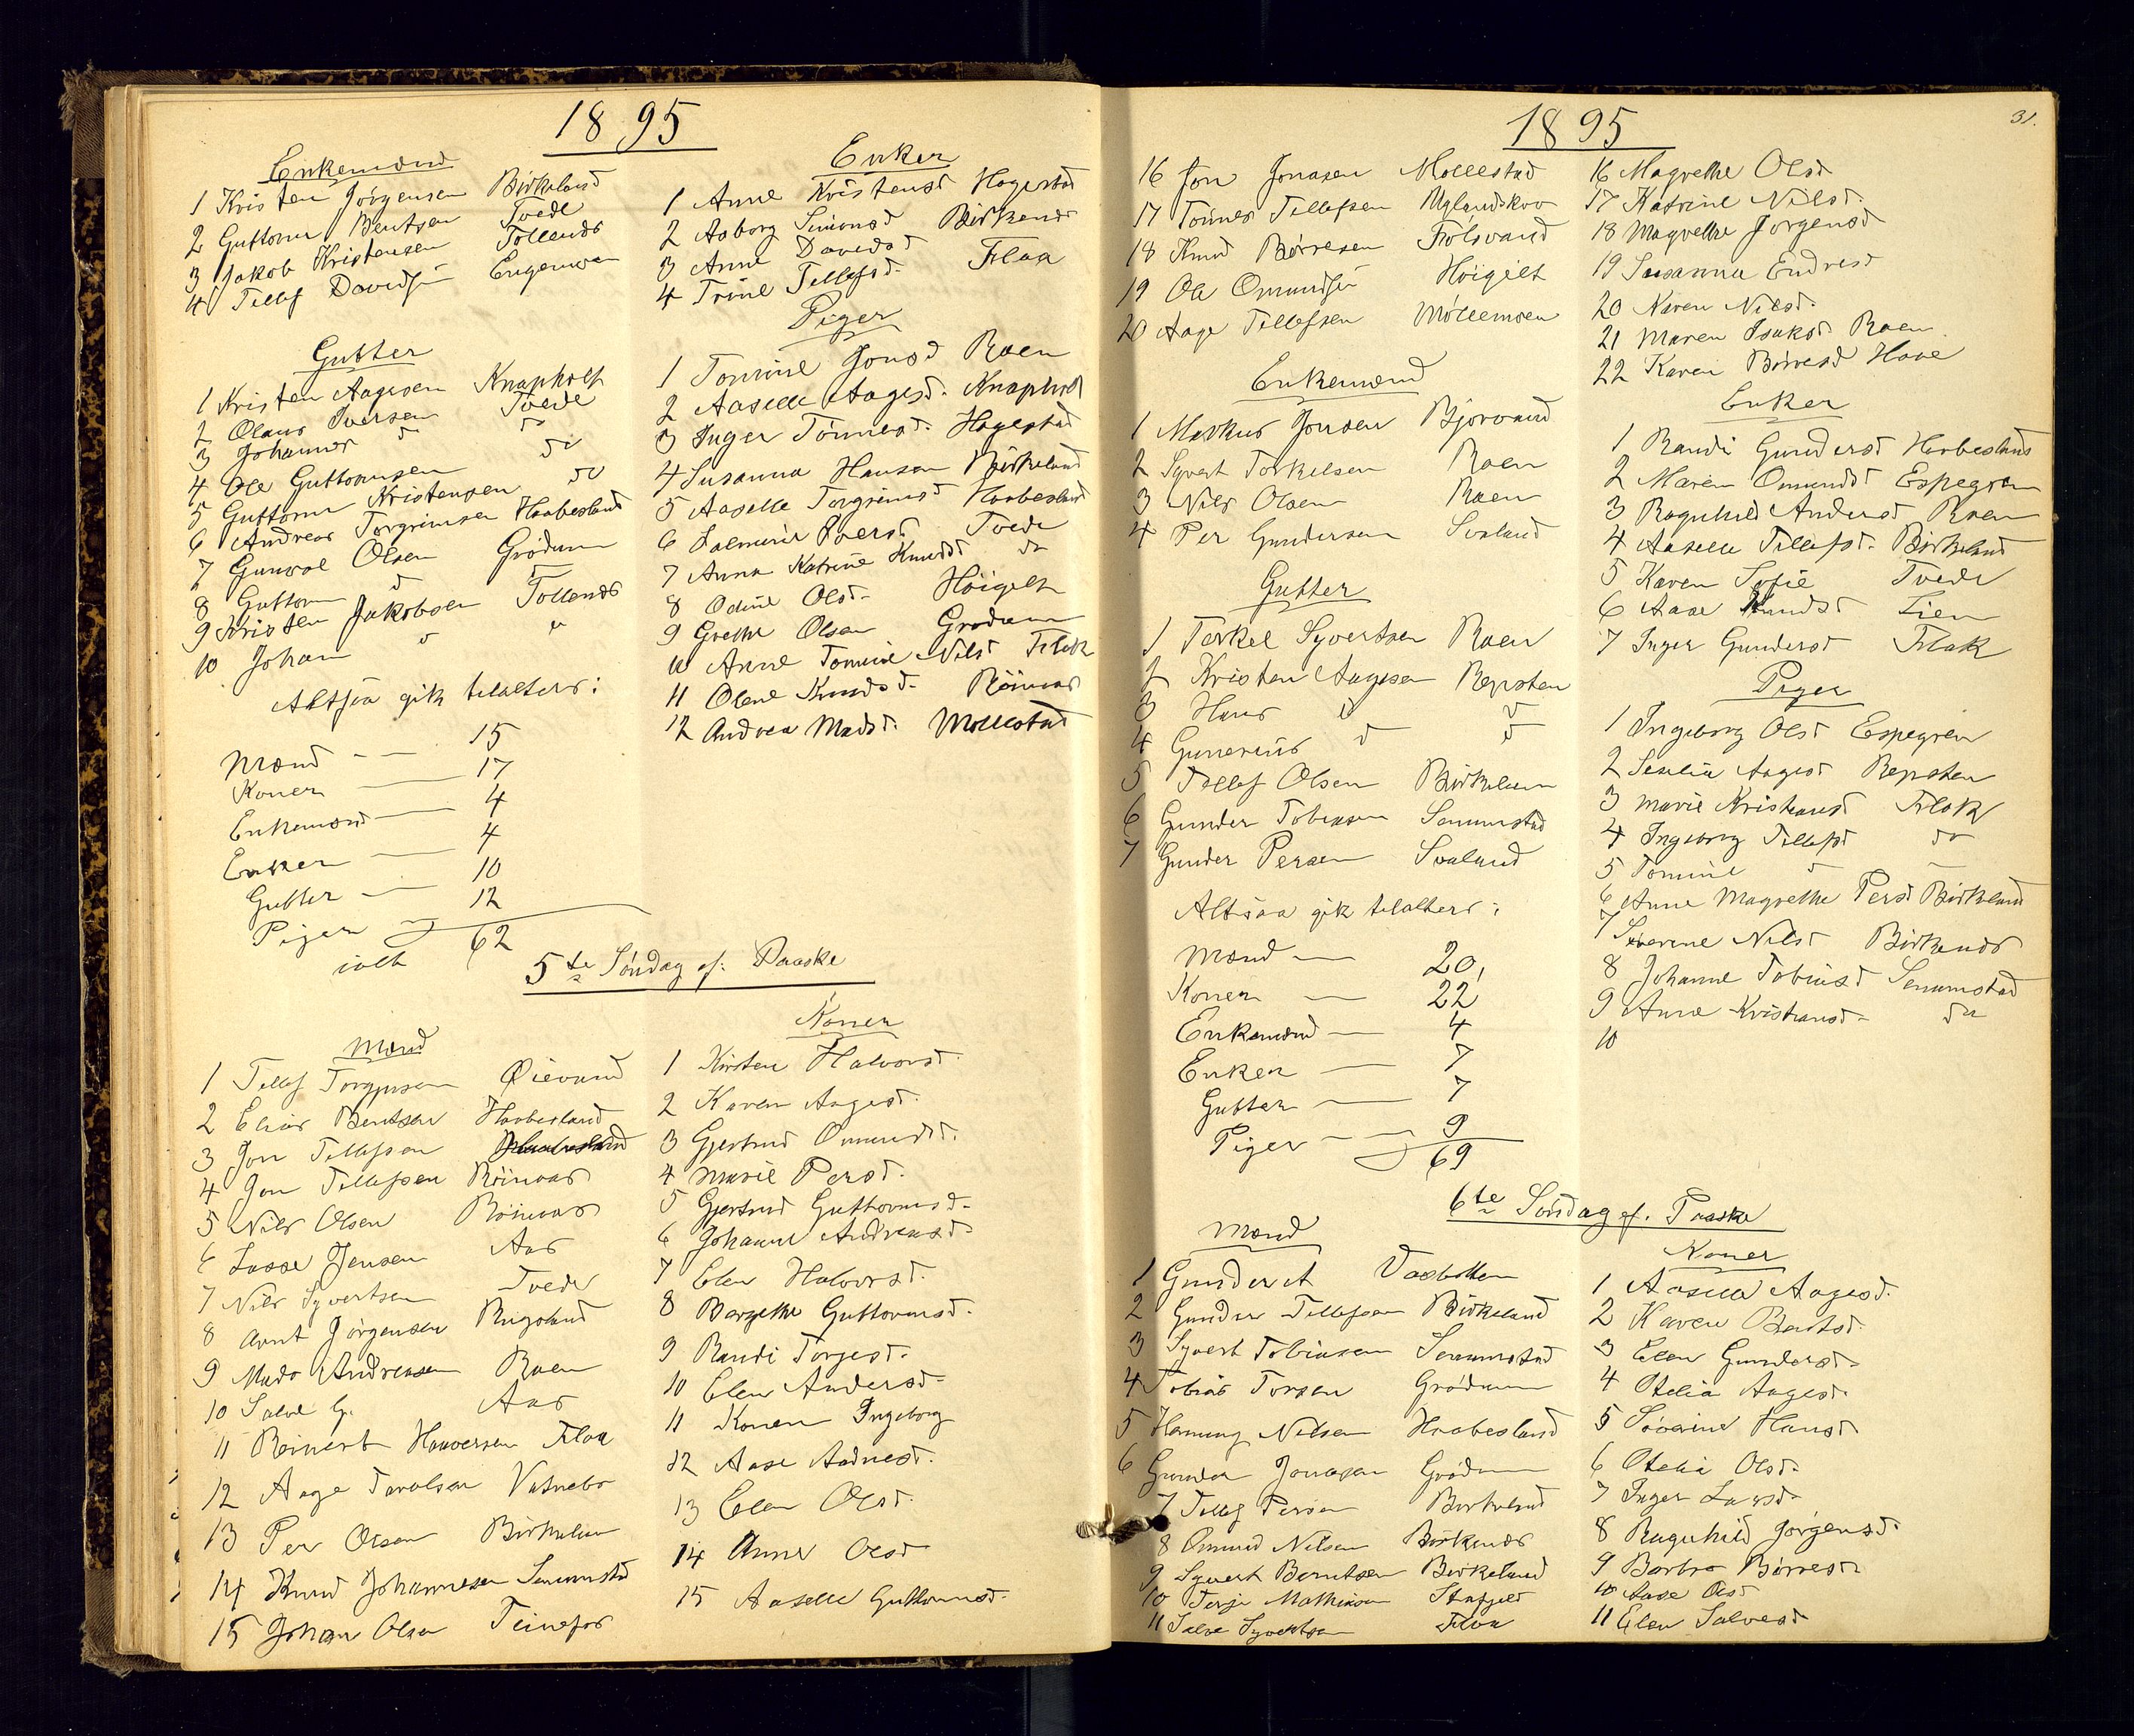 1895
Enkemænd
1 Kristen Jörgensen Birkeland
2 Guttorm Bentsen Tvede
3 Jakob Kristensen Tollends
4 Tellef Davidsen Eugenmoen
Gutter
1 Kristen Aagesen Knapholt
2 Olaus Iversen Tvede
3 Johannes d do
4 Ole Guttormsen do
5 Guttorm Kristensen do
6 Andreas Torgrimsen Haabesland
7 Gunvol Olsen Grödum
8 Guttorm d
9 Kristen Jakobsen Tollends
10 Johan d "
Altsaa gik tilalters:
Mænd — 15
Koner — 17
Enkemænd — 4
Enker — 4
Gutter — 10
Piger — 12
ialt 62
Enker
1 Anne Kristensd Hagestad
2 Aaborg Simonsd Birkends
3 Anne Davidsd
4 Trine Tellefsd. Flaa
Piger
1 Tomine Jonsd Roen
2 Aaselle Aagesd. Knapholt
3 Inger Tönnesd. Hagestad
4 Susanna Hansen Birkeland
5 Aaselle Torgrimsd Haabesland
6 Iversd Tvede
7 Anna Katrine Knudsd do
8 Odine Olsd. Höigilt
9 Grethe Olsen Grödum
10 Anne Tomine Nilsd Flak
11 Olene Knudsd. Röinaas
12 Andrea Madsd. Mollestad
5te Söndag ef: Paaske
Mænd
1 Tellef Torgjusen Öievand
2 Elias Bentsen Haabesland
3 Jon Tellefsen
4 Jon Tellefsen Röinaas
5 Nils Olsen Röinaas
6 Lasse Jensen Aas
7 Nils Syvertsen Tvede
8 Arnt Jörgensen Rugsland
9 Mads Andreasen Roen
10 Salve G. Aas
11 Reinert Haaversen Flaa
12 Aage Taraldsen Vatnebo
13 Per Olsen Birkeland
14 Knud Johannesen Senumstad
15 Johan Olsen Teinefos
Koner
1 Kirsten Halvorsd
2 Karen Aagesd.
3 Gjertrud Omundsd.
4 Marie Persd.
5 Gjertrud Guttormsd.
6 Johanne Andreasd.
7 Elen Halvorsd.
8 Bergethe Guttormsd.
9 Randi Torjesd.
10 Elen Andersd.
11 Konen Ingeborg
12 Aase Aadnesd.
13 Elen Olsd.
14 Anne Olsd
15 Aaselle Guttormsd.
1895
31.
16 Jon Jonasen Mollestad
17 Tönnes Tellefsen Uglandskov
18 Knud Börresen Frölsvand
19 Ole Omundsen Höigilt
20 Aage Tellefsen Möllemoen
Enkemænd
1 Markus Jonsen Bjorvand
2 Syvert Torkelsen Roen
3 Nils Olsen Roen
4 Per Gundersen Svaland
Gutter
1 Torkel Syvertsen Roen
2 Kristen Aagesen Repsten
3 Hans d d
4 Gunerius d d
5 Tellef Olsen Birkeland
6 Gunder Tobiasen Senumstad
7 Gunder Persen Svaland
Altsaa gik tilalters:
Mænd — 20,
Koner — 22
Enkemænd — 4
Enker — 7
Gutter — 7
Piger — 9
69
16 Magrethe Olsd
17 Katrine Nilsd.
18 Magrethe Jörgensd
19 Susanna Endresd
20 Karen Nilsd.
21 Maren Isaksd. Roen
22 Karen Börresd Hove
Enker
1 Randi Gundersd Haabesland
2 Maren Omundsd Espegren
3 Ragnhild Andersd Roen
4 Aaselle Tellefsd. Birkeland
5 Karen Sofie Tvede
6 Aase Knudsd Lien
7 Inger Gundersd Flak
Piger
1 Ingeborg Olsd Espegren
2 Aagesd Repsten
3 Marie Kristensd Flak
4 Ingeborg Tellefsd do
5 Tomine d —
6 Anne Magrethe Persd Birkeland
7 Severine Nilsd Birkends
8 Johanne Tobiasd Senumstad
9 Anne Kristiansd. do
10
6te Söndag ef. Paaske
Mænd
1 Gunder A Vasbotten
2 Gunder Tellefsen Birkeland
3 Syvert Tobiasen Senumstad
4 Tobias Torsen Grödum
5 Henning Nilsen Haabesland
6 Gunder Jonasen Grödum
7 Tellef Persen Birkeland
8 Omund Nilsen Birkends
9 Syvert Berntsen Birkeland
10 Terje Mathiasen
11 Salve Syvertsen Flaa
Koner
1 Aaselle Aagesd.
2 Karen Bentsd.
3 Elen Gundersd.
4 Otelia Aagesd.
5 Severine Hansd
6 Otelia Olsd.
7 Inger Larsd.
8 Ragnhild Jörgensd.
9 Barbro Börresd
10 Aase Olsd
11 Elen Salvesd